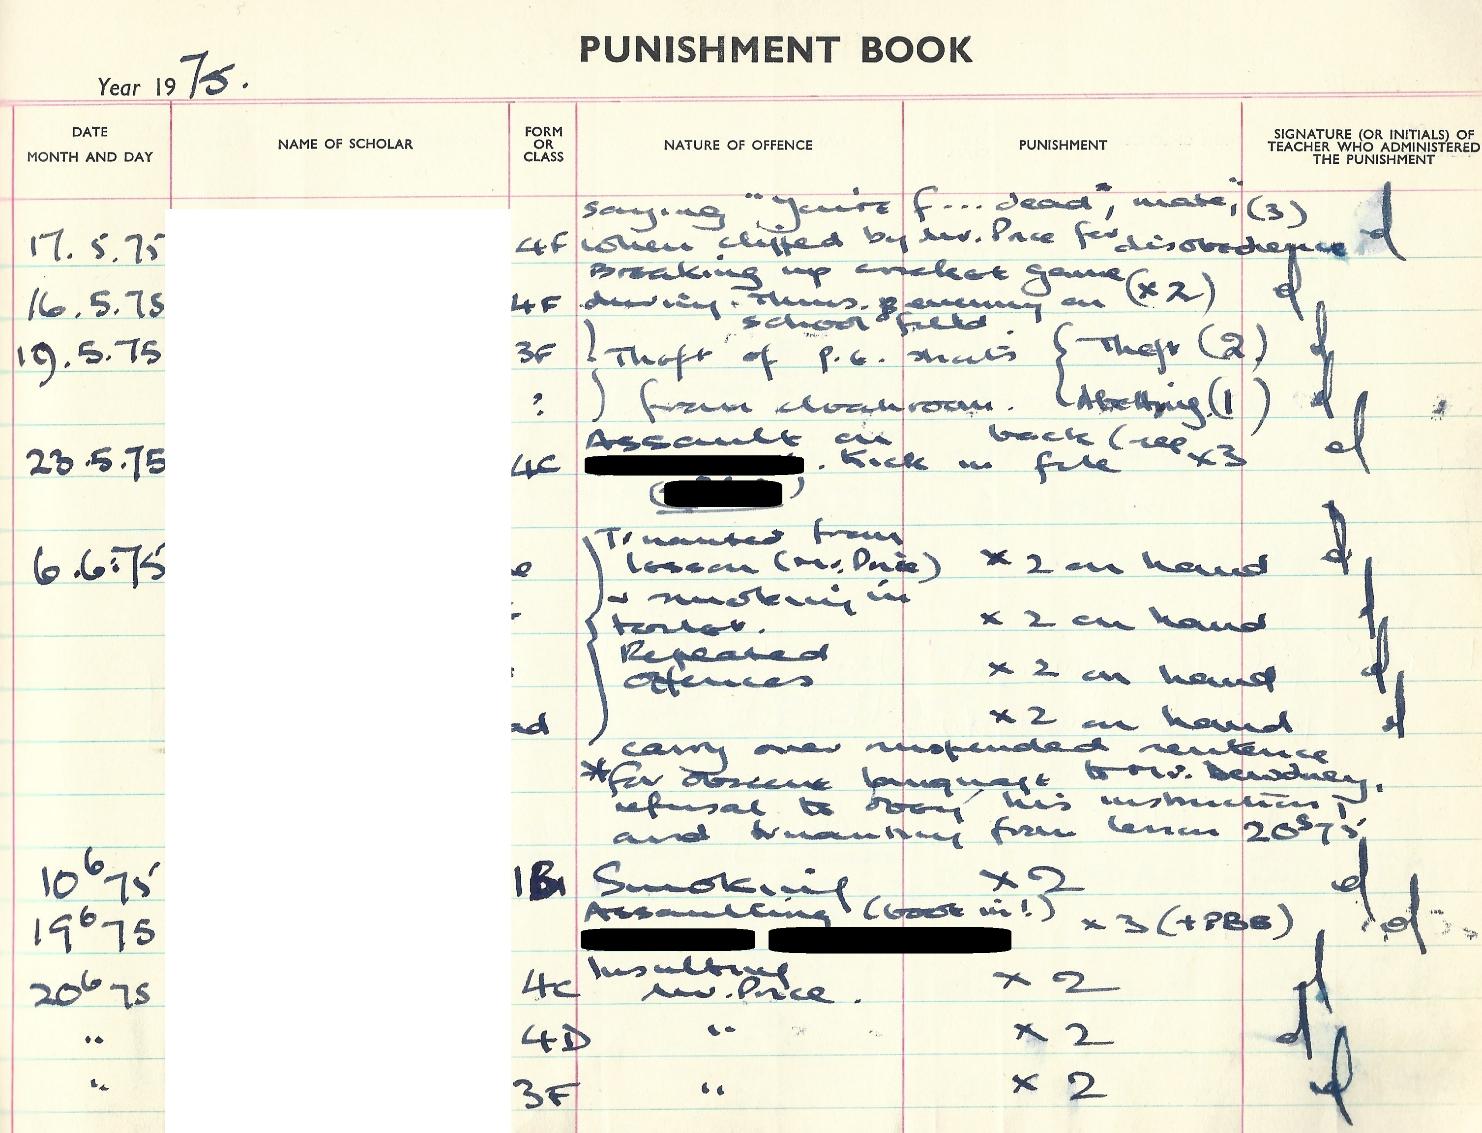 PUNISHMENT BOOK
Year 1975.
DATE
MONTH AND DAY
NAME OF SCHOLAR
FORM
OR
CLASS
NATURE OF OFFENCE
PUNISHMENT
SIGNATURE (OR INITIALS) OF
TEACHER WHO ADMINISTERED
THE PUNISHMENT
saying "you're f... dead", mate," (3)
17.5.75 4F when cliffed by Mr. Price for disobedience
Breaking up cricket game
16.5.75 4F during Thurs. evening on (x2)
school field
19.5.75 3F Theft of P.E. shorts Theft (2)
? from cloakroom. Abetting (1)
Assault on back (
23.5.75 4C . Kick in x3
Truanted from
6.6.75 e lesson (Mr. Price) x 2 on hand
+ smoking in
toilet. x 2 on hand
Repeated
Offences x 2 on hand
ad x 2 on hand
carry over suspended sentence
*for obscene language to Mr. Dewdney,
refusal to obey his instruction,
and truanting from lesson 20 5 75
10 6 75 1B Smoking x 2
Assaulting (boot in!)
19 6 75 x 3 (+PBS)
Insulting
20 6 75 4C Mr. Price. x 2
" 4D " x 2
" 3F " x 2